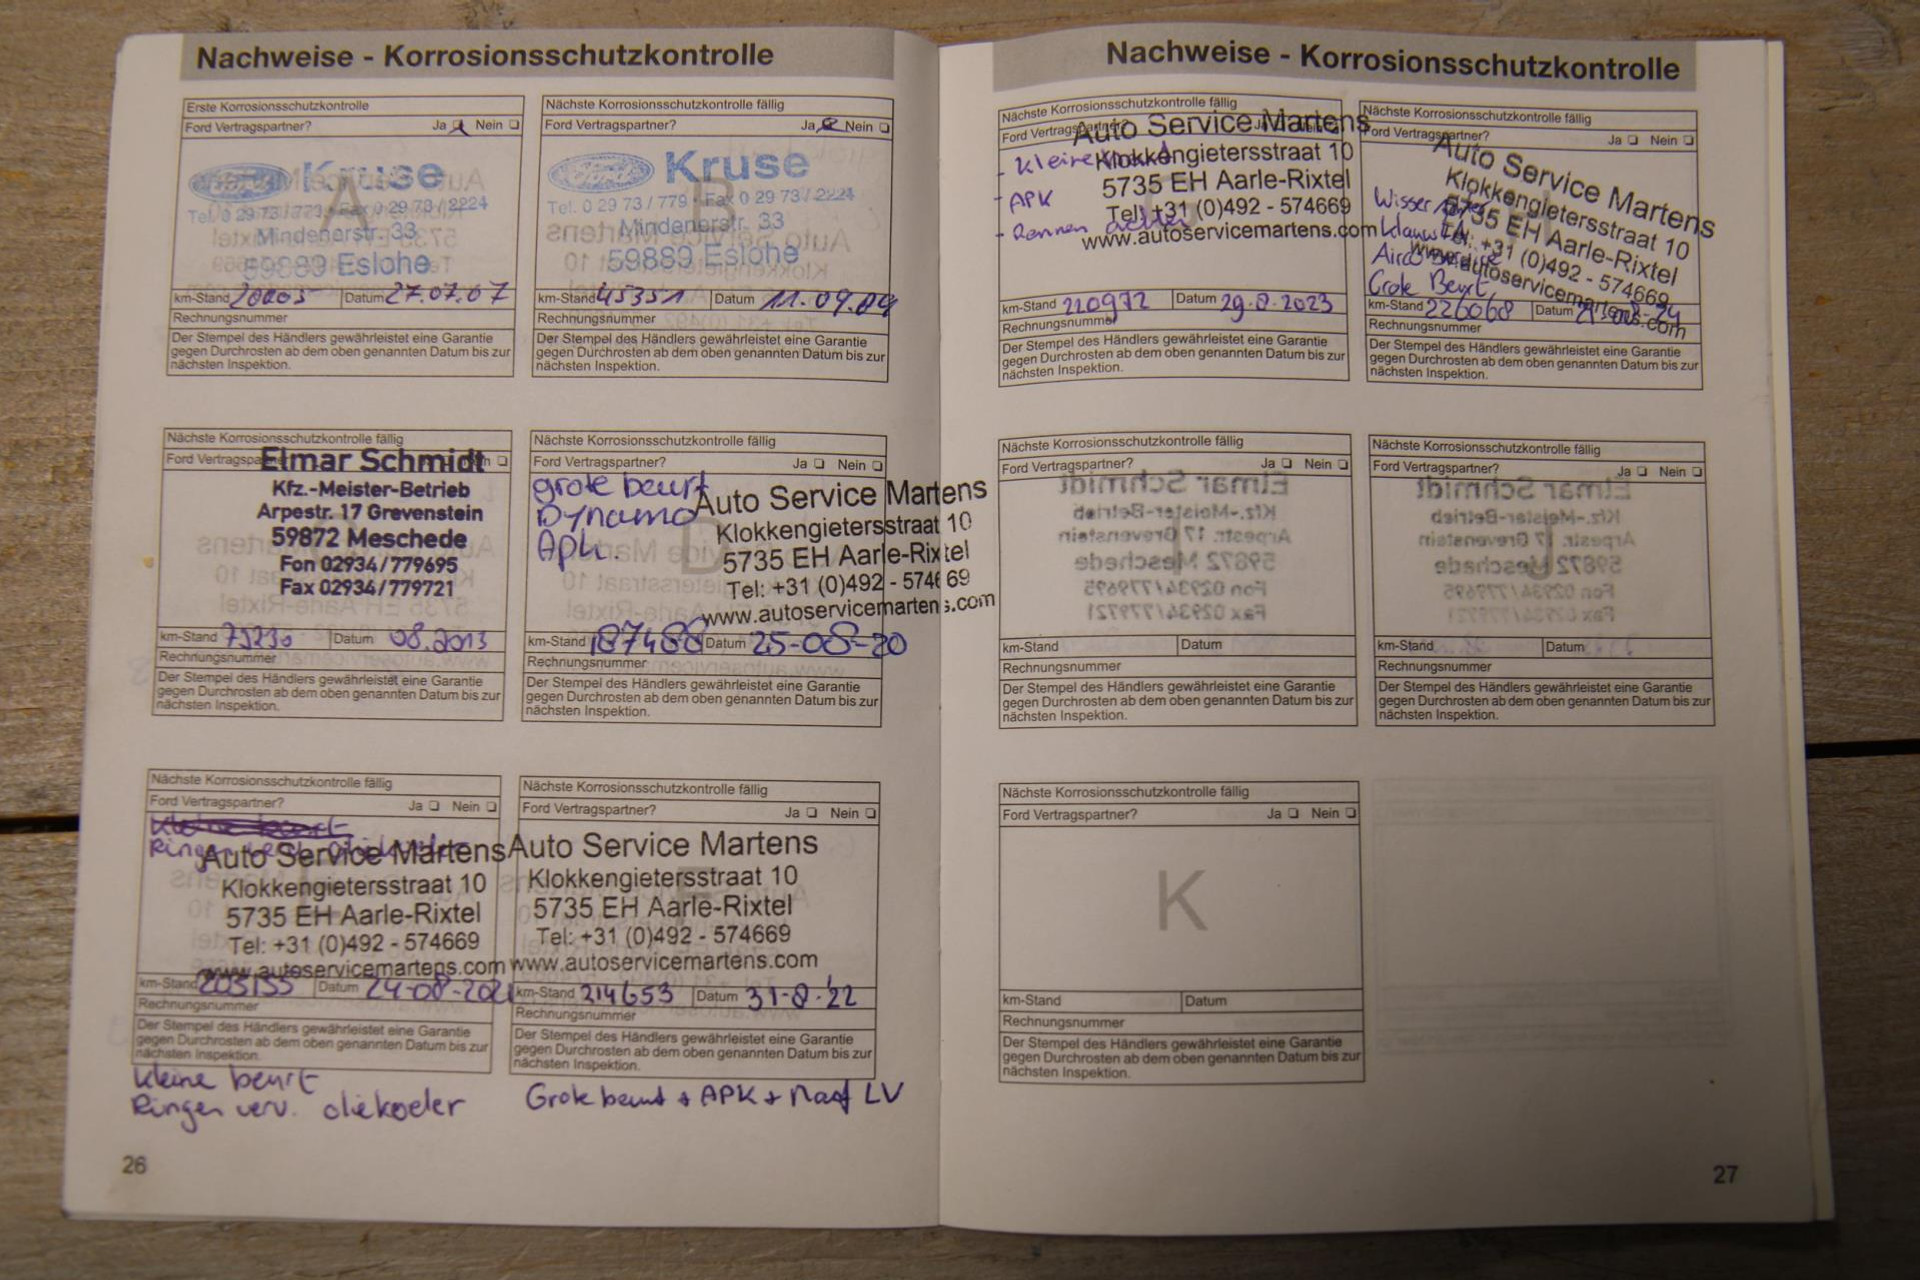 Nachweise - Korrosionsschutzkontrolle
Erste Korrosionsschutzkontrolle
Ford Vertragspartner? Ja Nein
Ford Kruse
Tel. 0 29 73 / 779 · Fax 0 29 73 / 2224
Mindenerstr. 33
59889 Eslohe
km-Stand Datum 27.07.07
Rechnungsnummer
Der Stempel des Händlers gewährleistet eine Garantie
gegen Durchrosten ab dem oben genannten Datum bis zur
nächsten Inspektion.
Nächste Korrosionsschutzkontrolle fällig
Ford Vertragspartner? Ja Nein
B
Ford Kruse
Tel. 0 29 73 / 779 · Fax 0 29 73 / 2224
Mindenerstr. 33
59889 Eslohe
km-Stand 45351 Datum 11.09.09
Rechnungsnummer
Der Stempel des Händlers gewährleistet eine Garantie
gegen Durchrosten ab dem oben genannten Datum bis zur
nächsten Inspektion.
Nächste Korrosionsschutzkontrolle fällig
Elmar Schmidt
Kfz.-Meister-Betrieb
Arpestr. 17 Grevenstein
59872 Meschede
Fon 02934/779695
Fax 02934/779721
km-Stand 75230 Datum 08.2013
Rechnungsnummer
Der Stempel des Händlers gewährleistet eine Garantie
gegen Durchrosten ab dem oben genannten Datum bis zur
nächsten Inspektion.
Nächste Korrosionsschutzkontrolle fällig
Ford Vertragspartner? Ja Nein
D
grote beurt
Dynamo
Apk.
Auto Service Martens
Klokkengietersstraat 10
5735 EH Aarle-Rixtel
Tel: +31 (0)492 - 574669
www.autoservicemartens.com
km-Stand 187488 Datum 25-08-20
Rechnungsnummer
Der Stempel des Händlers gewährleistet eine Garantie
gegen Durchrosten ab dem oben genannten Datum bis zur
nächsten Inspektion.
Nächste Korrosionsschutzkontrolle fällig
Ford Vertragspartner? Ja Nein
Auto Service Martens
Klokkengietersstraat 10
5735 EH Aarle-Rixtel
Tel: +31 (0)492 - 574669
www.autoservicemartens.com
km-Stand 205155 Datum 24-08-2021
Rechnungsnummer
Der Stempel des Händlers gewährleistet eine Garantie
gegen Durchrosten ab dem oben genannten Datum bis zur
nächsten Inspektion.
kleine beurt
Ringen verv. oliekoeler
Nächste Korrosionsschutzkontrolle fällig
Ford Vertragspartner? Ja Nein
Auto Service Martens
Klokkengietersstraat 10
5735 EH Aarle-Rixtel
Tel: +31 (0)492 - 574669
www.autoservicemartens.com
km-Stand 214653 Datum 31-8-'22
Rechnungsnummer
Der Stempel des Händlers gewährleistet eine Garantie
gegen Durchrosten ab dem oben genannten Datum bis zur
nächsten Inspektion.
Grote beurt + APK + LV
26
Nachweise - Korrosionsschutzkontrolle
Nächste Korrosionsschutzkontrolle fällig
Auto Service Martens
Klokkengietersstraat 10
5735 EH Aarle-Rixtel
Tel: +31 (0)492 - 574669
www.autoservicemartens.com
- kleine
- APK
- Remmen achter
km-Stand 220972 Datum 29-8-2023
Rechnungsnummer
Der Stempel des Händlers gewährleistet eine Garantie
gegen Durchrosten ab dem oben genannten Datum bis zur
nächsten Inspektion.
Nächste Korrosionsschutzkontrolle fällig
Ford Vertragspartner? Ja Nein
Auto Service Martens
Klokkengietersstraat 10
5735 EH Aarle-Rixtel
Tel: +31 (0)492 - 574669
www.autoservicemartens.com
Wisser
Airco
Grote Beurt
km-Stand 226068 Datum
Rechnungsnummer
Der Stempel des Händlers gewährleistet eine Garantie
gegen Durchrosten ab dem oben genannten Datum bis zur
nächsten Inspektion.
Nächste Korrosionsschutzkontrolle fällig
Ford Vertragspartner? Ja Nein
I
km-Stand Datum
Rechnungsnummer
Der Stempel des Händlers gewährleistet eine Garantie
gegen Durchrosten ab dem oben genannten Datum bis zur
nächsten Inspektion.
Nächste Korrosionsschutzkontrolle fällig
Ford Vertragspartner? Ja Nein
J
km-Stand Datum
Rechnungsnummer
Der Stempel des Händlers gewährleistet eine Garantie
gegen Durchrosten ab dem oben genannten Datum bis zur
nächsten Inspektion.
Nächste Korrosionsschutzkontrolle fällig
Ford Vertragspartner? Ja Nein
K
km-Stand Datum
Rechnungsnummer
Der Stempel des Händlers gewährleistet eine Garantie
gegen Durchrosten ab dem oben genannten Datum bis zur
nächsten Inspektion.
27